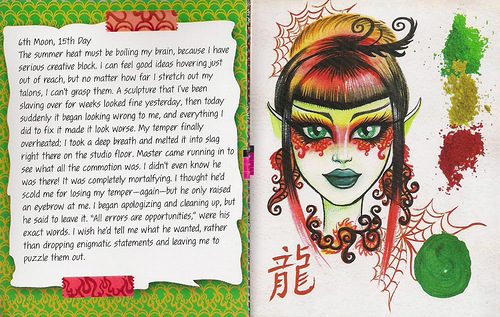 6th Moon, 15th Day
The summer heat must be boiling my brain, because I have
serious creative block. I can feel good ideas hovering just
out of reach, but no matter how far I stretch out my
talons, I can't grasp them. A sculpture that I've been
slaving over for weeks looked fine yesterday, then today
suddenly it began looking wrong to me, and everything I
did to fix it made it look worse. My temper finally
overheated; I took a deep breath and melted it into slag
right there on the studio floor. Master came running in to
see what all the commotion was. I didn't even know he
was there! It was completely mortalfying. I thought he'd
scold me for losing my temper—again—but he only raised
an eyebrow at me. I began apologizing and cleaning up, but
he said to leave it. "All errors are opportunities," were his
exact words. I wish he'd tell me what he wanted, rather
than dropping enigmatic statements and leaving me to
puzzle them out.
龍